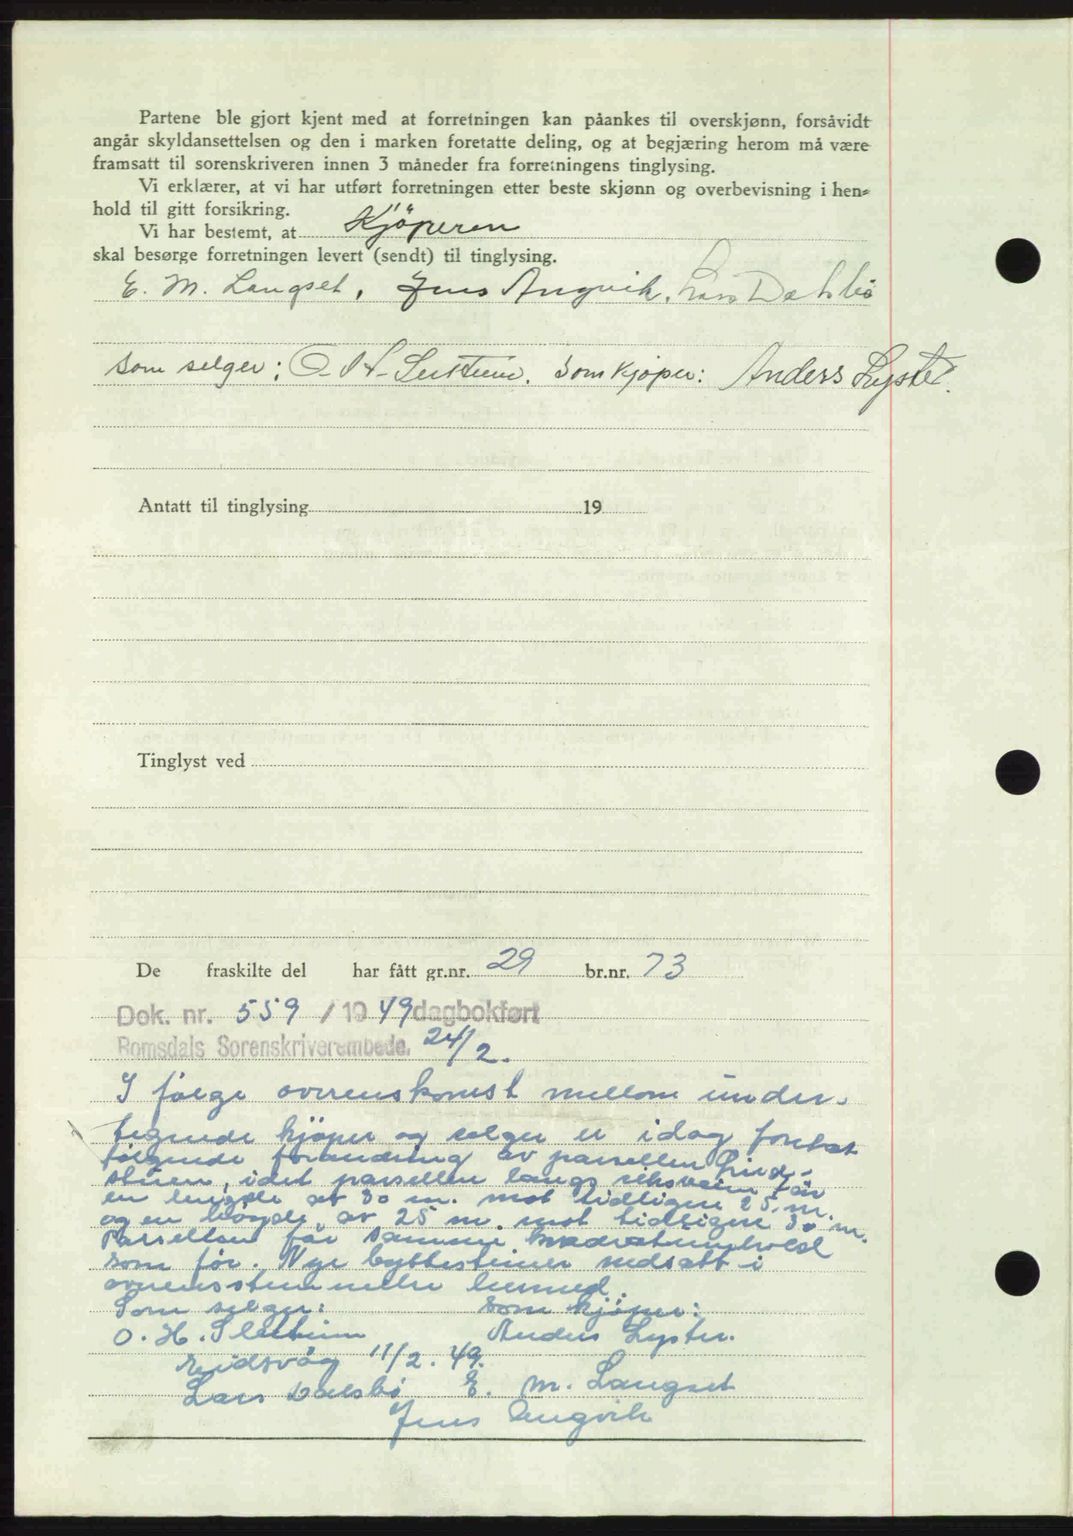 Partene ble gjort kjent med at forretningen kan påankes til overskjønn, forsåvidt
angår skyldansettelsen og den i marken foretatte deling, og at begjæring herom må være
framsatt til sorenskriveren innen 3 måneder fra forretningens tinglysing.
Vi erklærer, at vi har utført forretningen etter beste skjønn og overbevisning i hen-
hold til gitt forsikring.
Vi har bestemt, at Kjöperen
skal besørge forretningen levert (sendt) til tinglysing.
E. M. Langset, Jens Angvik, Lars Dahlbö
Som selger: O. H. Som kjöper: Anders Lyster.
Antatt til tinglysing 19
Tinglyst ved
De fraskilte del har fått gr.nr. 29 br.nr. 73
Dok. nr. 559 / 1949 dagbokført
Romsdals Sorenskriverembede. 24/2.
I følge overenskomst mellom under-
tegnede kjøper og selger er idag foretat
følgende forandring av parsellen
idet parsellen langs riksveien får
en lengde at 30 m. mot tidligere 25 m.
og en høyde av 25 m. mot tidligere 30 m.
Parsellen får samme kvadratinnhold
som før. Nye byttesteiner nedsatt i
overensstemmelse hermed.
Som selger: Som kjøper:
O. H. Sletteim Anders Lyster.
Eidsvåg 11/2. 49.
Lars Dalsbö E. M. Langset
Jens Angvik